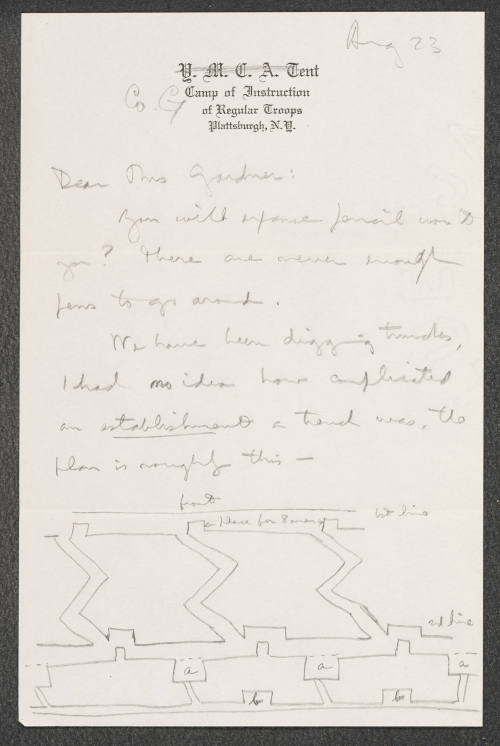 Aug 23
Y. M. C. A. Tent
Camp of Instruction
of Regular Troops
Plattsburgh, N.Y.
Co. G
Dear Mrs Gardner:
You will expense pencil won't
you? There are never enough
pens to go around.
We have been digging trenches,
I had no idea how complicated
an establishment a trench was, the
plan is roughly this —
front
1st line
a place for 8 men
2d line
a
a
a
b
b